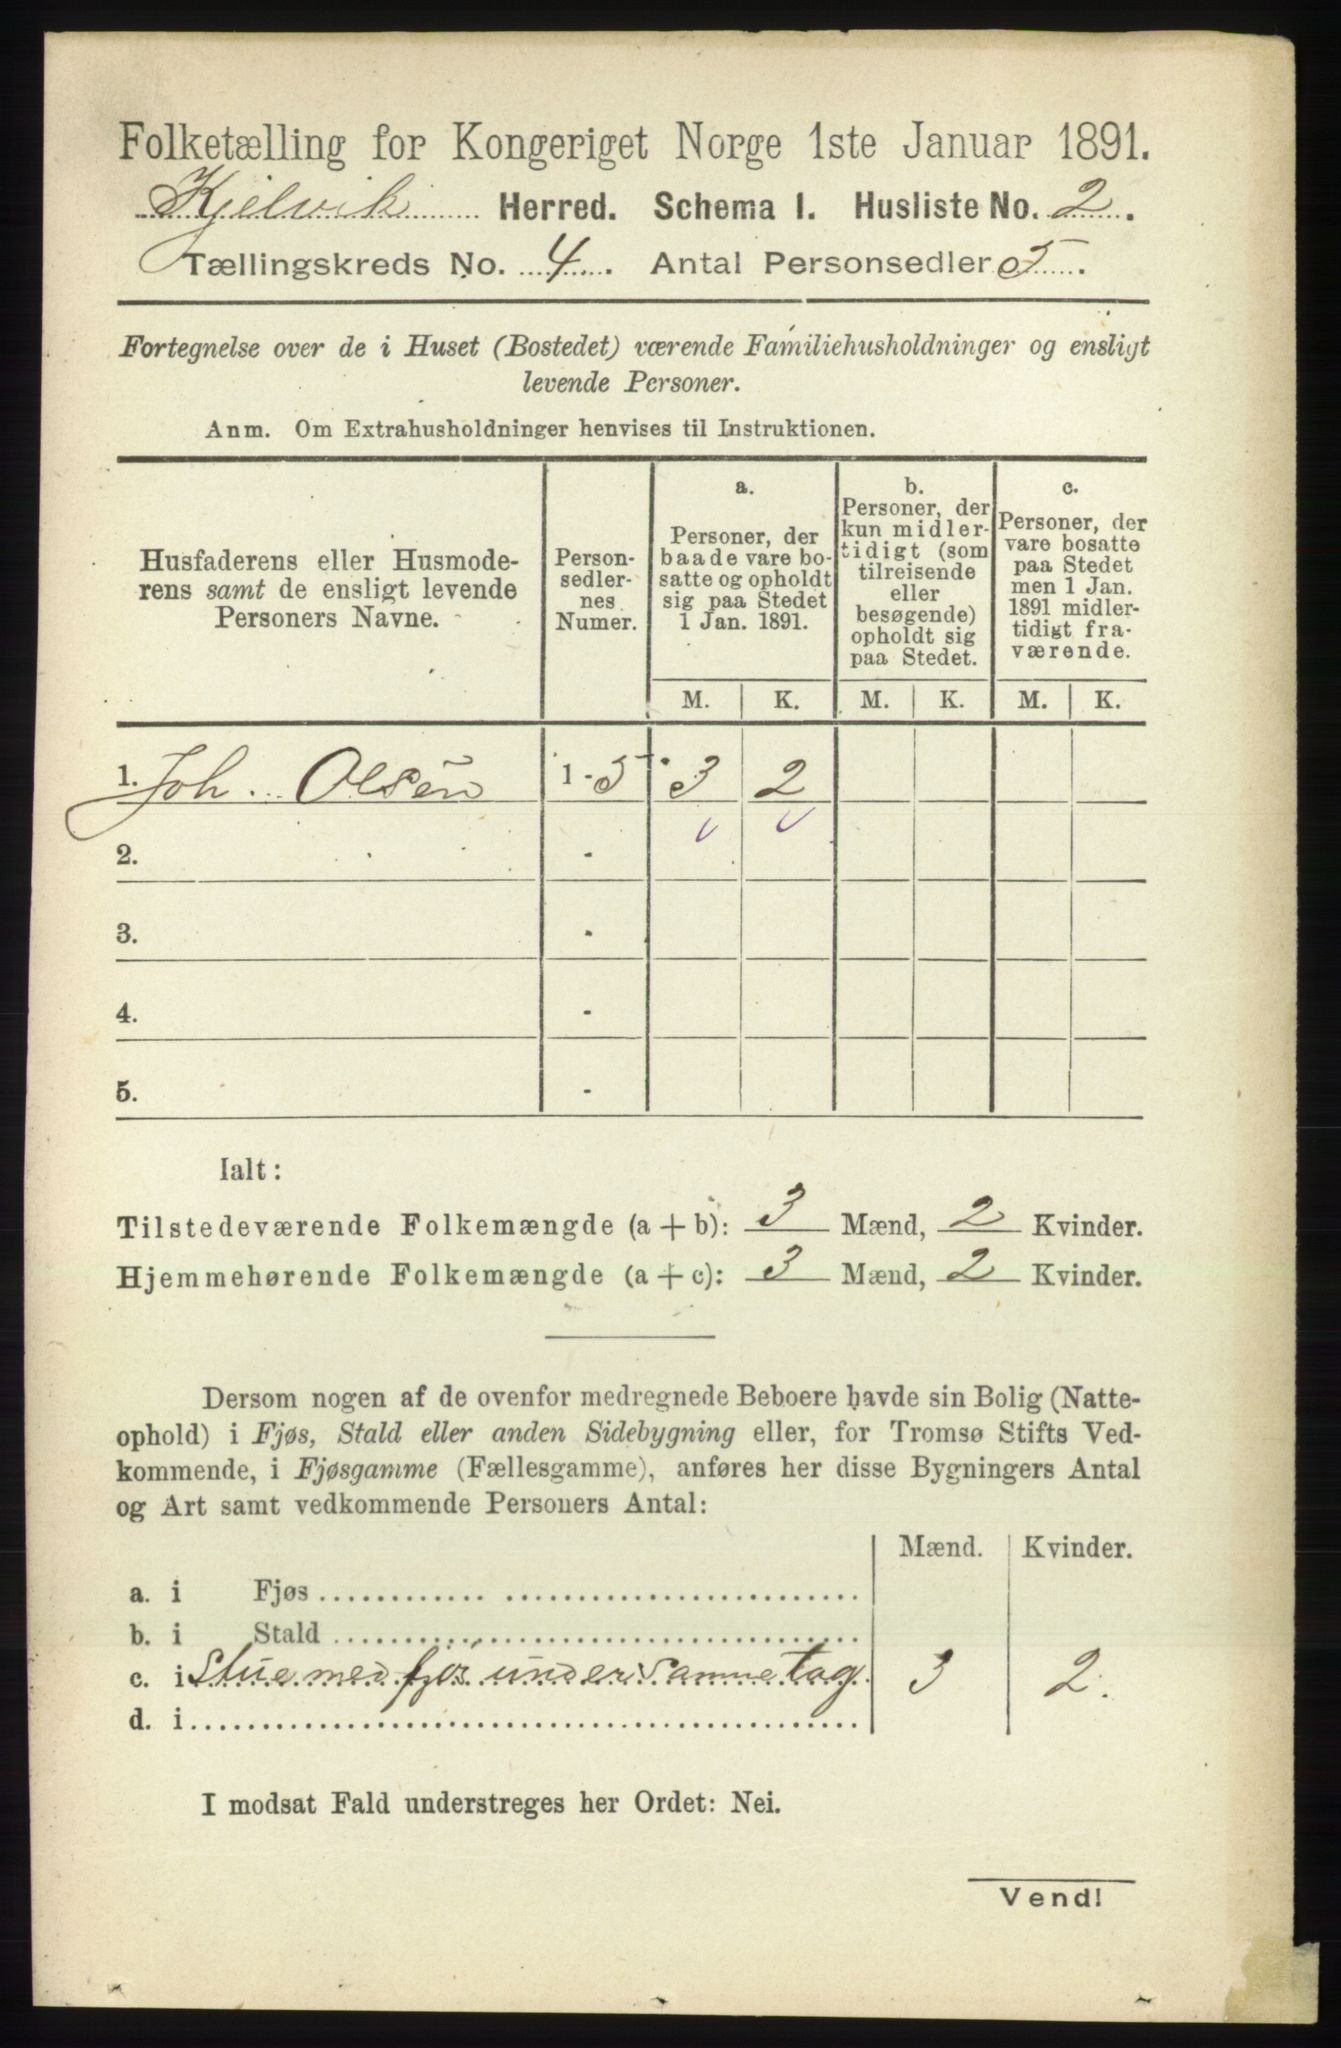 Folketælling for Kongeriget Norge 1ste Januar 1891.
Kjelvik Herred. Schema I. Husliste No. 2.
Tællingskreds No. 4. Antal Personsedler 5.
Fortegnelse over de i Huset (Bostedet) værende Familiehusholdninger og ensligt
levende Personer.
Anm. Om Extrahusholdninger henvises til Instruktionen.
Husfaderens eller Husmode-
rens samt de ensligt levende
Personers Navne.
Person-
sedler-
nes
Numer.
a.
Personer, der
baade vare bo-
satte og opholdt
sig paa Stedet
1 Jan. 1891.
b.
Personer, der
kun midler-
tidigt (som
tilreisende
eller
besøgende)
opholdt sig
paa Stedet.
c.
Personer, der
vare bosatte
paa Stedet
men 1 Jan.
1891 midler-
tidigt fra-
værende.
M. K. M. K. M. K.
1. Joh. Olsen 1-5 3 2
2. -
3. -
4. -
5. -
Ialt:
Tilstedeværende Folkemængde (a + b): 3 Mænd, 2 Kvinder.
Hjemmehørende Folkemængde (a + c): 3 Mænd, 2 Kvinder.
Dersom nogen af de ovenfor medregnede Beboere havde sin Bolig (Natte-
ophold) i Fjøs, Stald eller anden Sidebygning eller, for Tromsø Stifts Ved-
kommende, i Fjøsgamme (Fællesgamme), anføres her disse Bygningers Antal
og Art samt vedkommende Personers Antal:
Mænd. Kvinder.
a. i Fjøs
b. i Stald
c. i Stue med fjøs under samme tag 3 2.
d. i
I modsat Fald understreges her Ordet: Nei.
Vend!